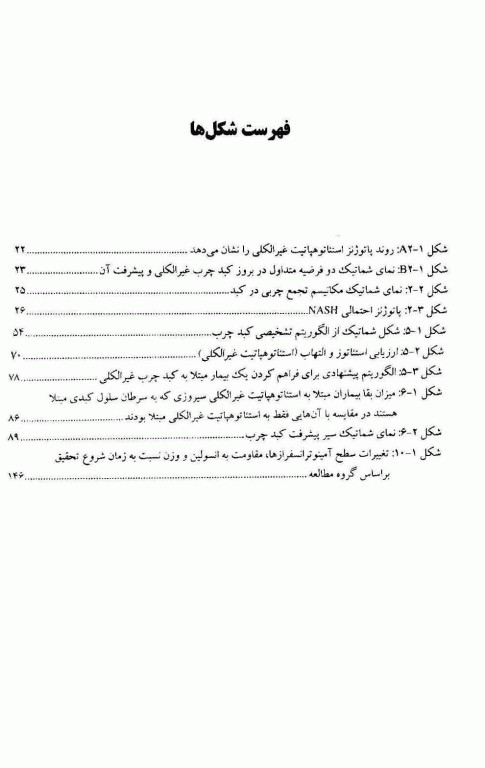 فهرست شکل‌ها
شکل ۱-A۲: روند پاتوژنز استئاتوهپاتیت غیرالکلی را نشان می‌دهد ........ ۲۲
شکل ۱-B۲: نمای شماتیک دو فرضیه متداول در بروز کبد چرب غیرالکلی و پیشرفت آن ........ ۲۳
شکل ۲-۲: نمای شماتیک مکانیسم تجمع چربی در کبد ........ ۲۵
شکل ۳-۲: پاتوژنز احتمالی NASH ........ ۲۶
شکل ۱-۵: شکل شماتیک از الگوریتم تشخیصی کبد چرب ........ ۵۴
شکل ۲-۵: ارزیابی استئاتوز و التهاب (استئاتوهپاتیت غیرالکلی) ........ ۷۰
شکل ۳-۵: الگوریتم پیشنهادی برای فراهم کردن یک بیمار مبتلا به کبد چرب غیرالکلی ........ ۷۸
شکل ۱-۶: میزان بقا بیماران مبتلا به استئاتوهپاتیت غیرالکلی سیروزی که به سرطان سلول کبدی مبتلا
هستند در مقایسه با آن‌هایی فقط به استئاتوهپاتیت غیرالکلی مبتلا بودند ........ ۸۶
شکل ۲-۶: نمای شماتیک سیر پیشرفت کبد چرب ........ ۸۹
شکل ۱-۱۰: تغییرات سطح آمینوترانسفرازها، مقاومت به انسولین و وزن نسبت به زمان شروع تحقیق
براساس گروه مطالعه ........ ۱۴۶